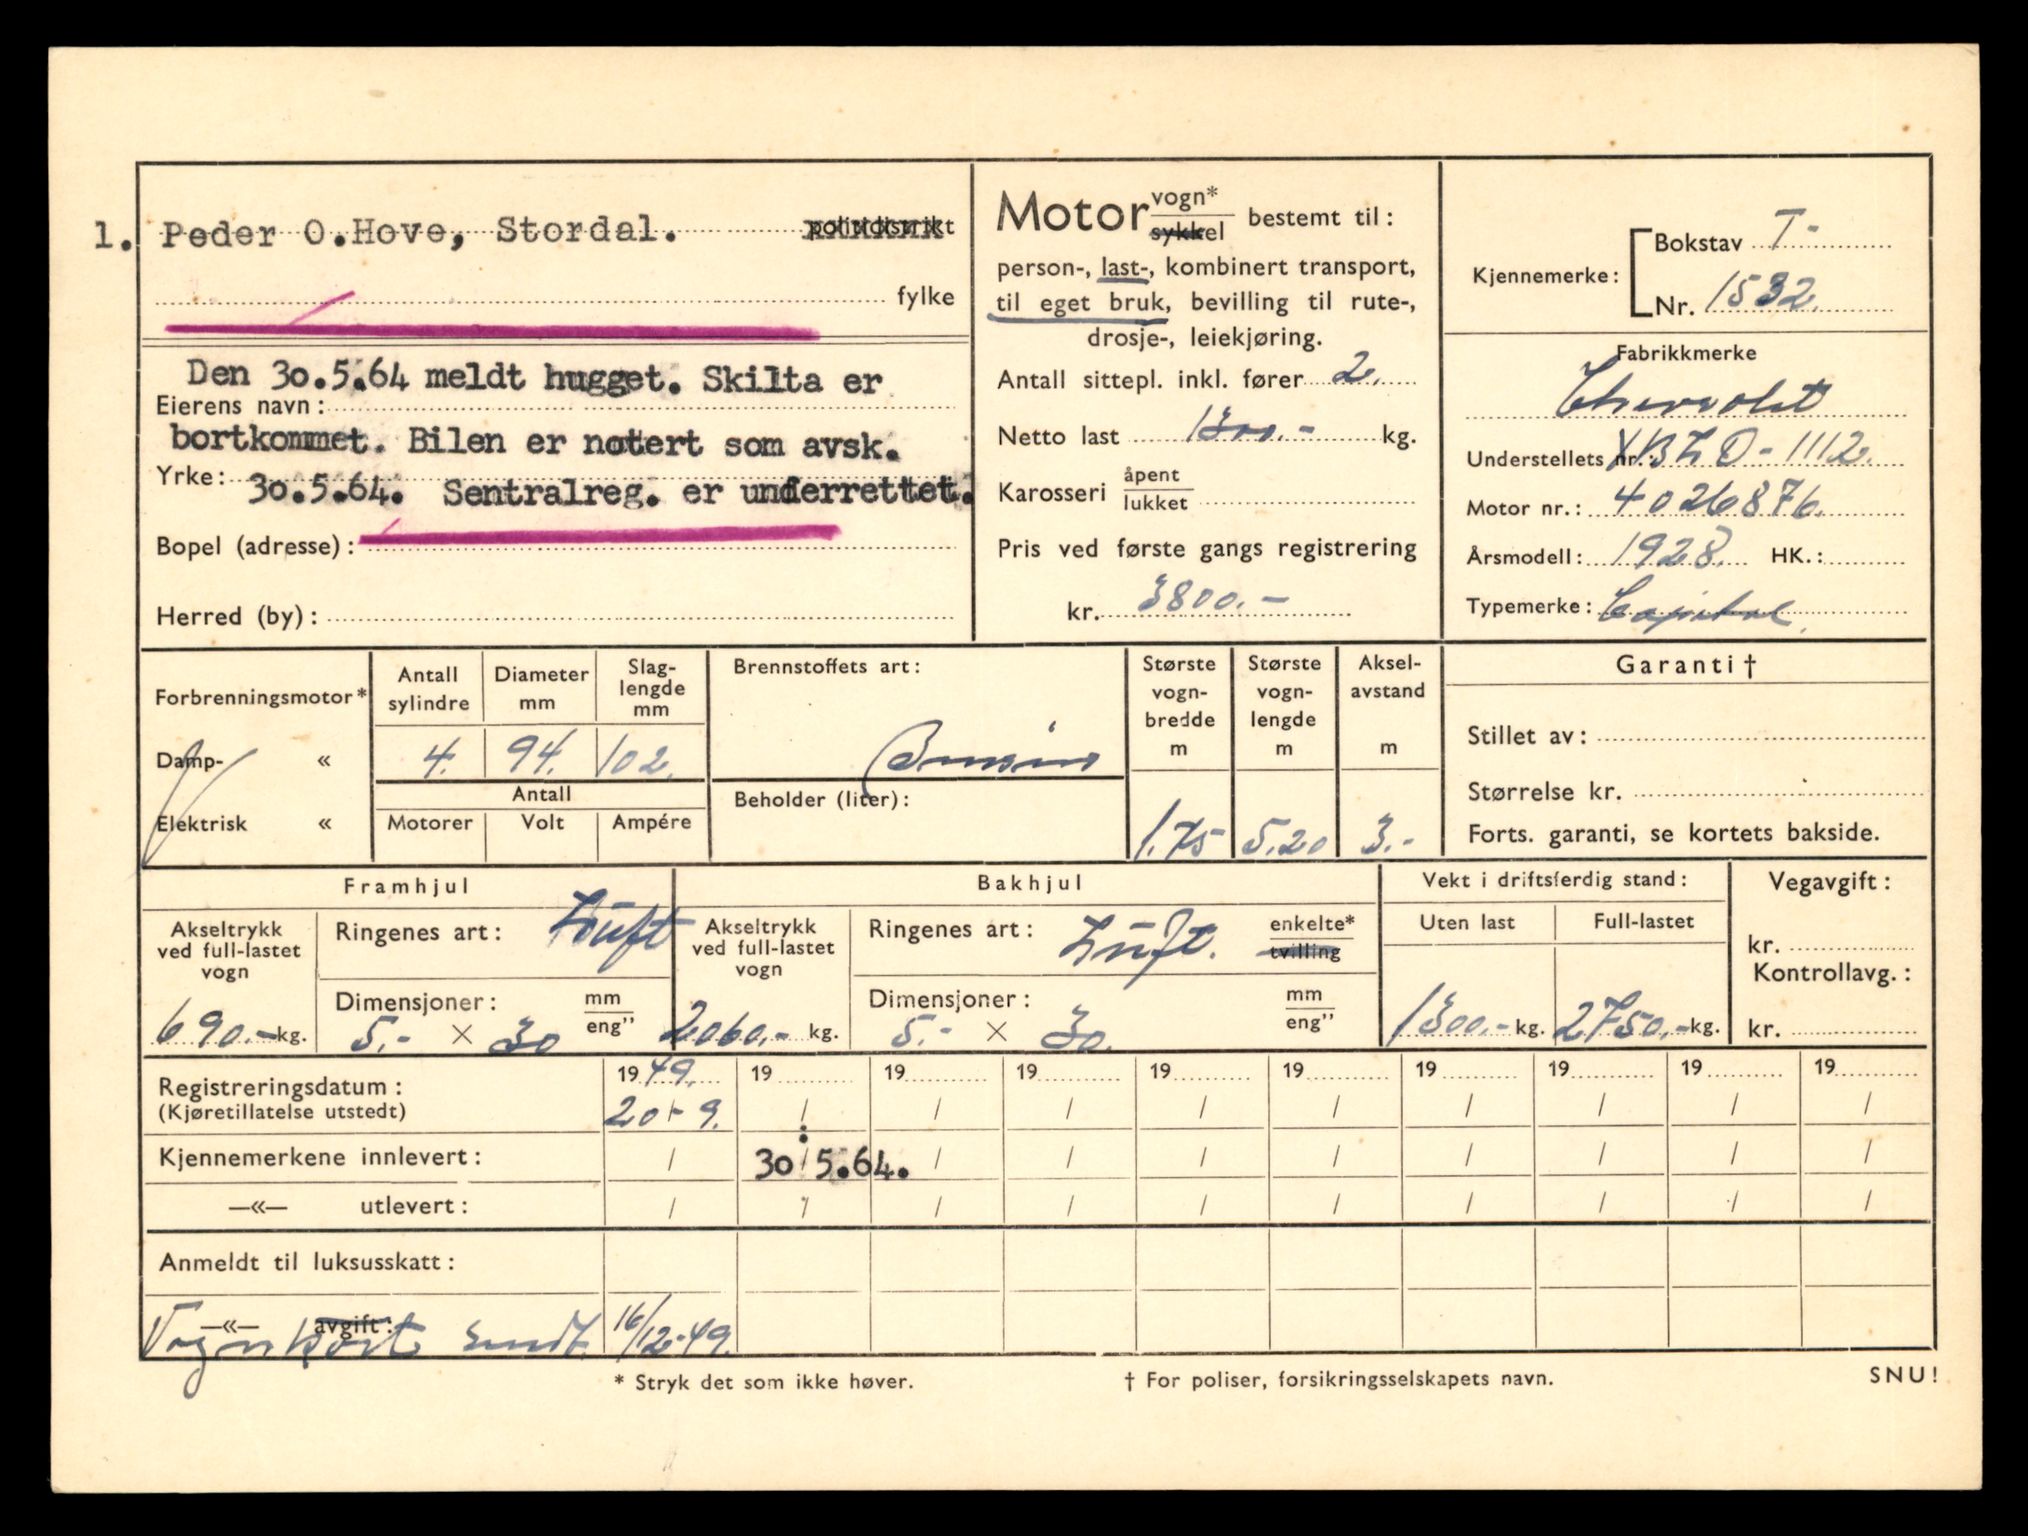 1. Peder O.Hove, Stordal. politidistrikt
fylke
Den 30.5.64 meldt hugget. Skilta er
Eierens navn:
bortkommet. Bilen er notert som avsk.
Yrke:
30.5.64. Sentralreg. er underrettet.
Bopel (adresse):
Herred (by):
Motor vogn* / sykkel bestemt til:
person-, last-, kombinert transport,
til eget bruk, bevilling til rute-,
drosje-, leiekjøring.
Antall sittepl. inkl. fører 2.
Netto last 1300.- kg.
Karosseri åpent / lukket
Pris ved første gangs registrering
kr. 3800.-
Kjennemerke: Bokstav T-
Nr. 1532.
Fabrikkmerke
Chevrolet
Understellets nr.: XBLO-1112.
Motor nr.: 4026876.
Årsmodell: 1928. HK.:
Typemerke: Capitol
Forbrenningsmotor*
Damp- «
Elektrisk «
Antall sylindre 4.
Diameter mm 94.
Slaglengde mm 102.
Antall
Motorer Volt Ampére
Brennstoffets art:
Bensin
Beholder (liter):
Største vognbredde m 1.75
Største vognlengde m 5.20
Akselavstand m 3.-
Garanti †
Stillet av:
Størrelse kr.
Forts. garanti, se kortets bakside.
Framhjul
Akseltrykk ved full-lastet vogn
690.- kg.
Ringenes art: Luft
Dimensjoner: mm / eng"
5.- × 30
Bakhjul
Akseltrykk ved full-lastet vogn
2060.- kg.
Ringenes art: Luft. enkelte* / tvilling
Dimensjoner: mm / eng"
5.- × 30.
Vekt i driftsferdig stand:
Uten last Full-lastet
1300.- kg. 2750.- kg.
Vegavgift:
kr.
Kontrollavg.:
kr.
Registreringsdatum: 1949. 19 19 19 19 19 19 19 19 19
(Kjøretillatelse utstedt) 20/-9. / / / / / / / / /
Kjennemerkene innlevert: / 30/5.64. / / / / / / / /
—«— utlevert: / / / / / / / / / /
Anmeldt til luksusskatt:
—«— avgift:
Vognkort sendt 16/12-49.
* Stryk det som ikke høver.
† For poliser, forsikringsselskapets navn.
SNU!